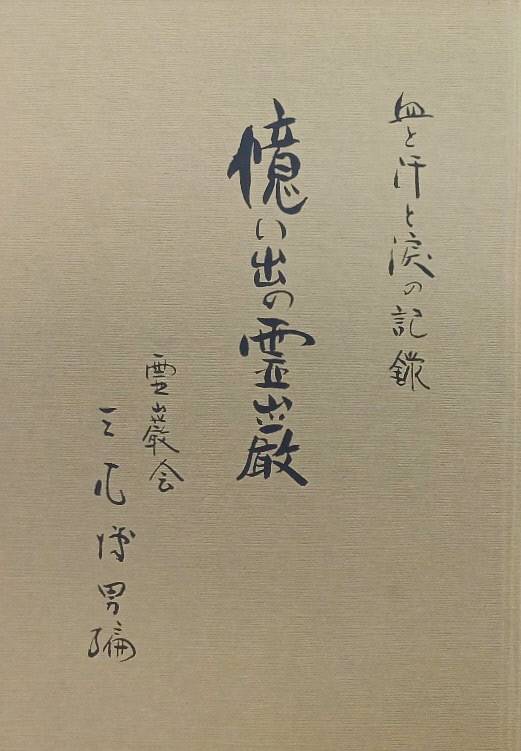 血と汗と涙の記録
憶い出の霊巌
霊巌会
博男編